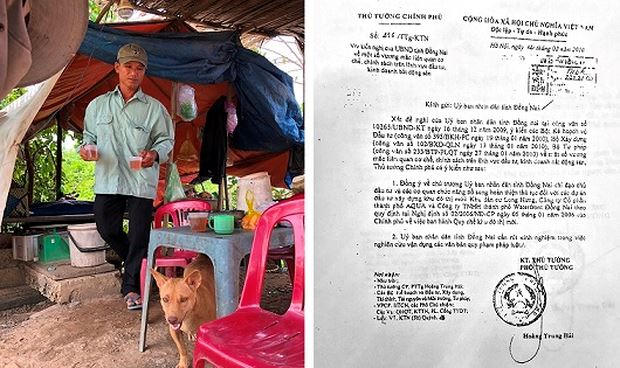 THỦ TƯỚNG CHÍNH PHỦ
CỘNG HÒA XÃ HỘI CHỦ NGHĨA VIỆT NAM
Độc lập - Tự do - Hạnh phúc
Số: /TTg-KTN
Hà Nội, ngày tháng 02 năm 2010
V/v kiến nghị của UBND tỉnh Đồng Nai
về một số vướng mắc liên quan cơ
chế, chính sách trên lĩnh vực đầu tư,
kinh doanh bất động sản
Kính gửi: Uỷ ban nhân dân tỉnh Đồng Nai
Xét đề nghị của Uỷ ban nhân dân tỉnh Đồng Nai tại công văn số
10265/UBND-KT ngày 16 tháng 12 năm 2009, ý kiến của Bộ: Kế hoạch và
Đầu tư (công văn số 395/BKH-PC ngày 19 tháng 01 năm 2010), Bộ Xây dựng
(công văn số 102/BXD-QLN ngày 13 tháng 01 năm 2010), Bộ Tư pháp
(công văn số 233/BTP-PLQT ngày 27 tháng 01 năm 2010) về một số vướng
mắc liên quan cơ chế, chính sách trên lĩnh vực đầu tư, kinh doanh bất động sản,
Thủ tướng Chính phủ có ý kiến như sau:
1. Đồng ý về chủ trương Uỷ ban nhân dân tỉnh Đồng Nai chỉ đạo chủ
đầu tư và các cơ quan chức năng bổ sung hoàn thiện thủ tục đối với các dự án
đầu tư xây dựng khu đô thị mới: Khu dân cư Long Hưng, Công ty Cổ phần
thành phố AQUA và Công ty TNHH thành phố Waterfront Đồng Nai theo
quy định tại Nghị định số 02/2006/NĐ-CP ngày 05 tháng 01 năm 2006 của
Chính phủ về việc ban hành Quy chế khu đô thị mới.
2. Uỷ ban nhân dân tỉnh Đồng Nai cần rút kinh nghiệm trong việc
nghiên cứu vận dụng các văn bản quy phạm pháp luật./.
Nơi nhận:
- Như trên;
- Thủ tướng CP, PTTg Hoàng Trung Hải;
- Các Bộ: Kế hoạch và Đầu tư, Xây dựng,
Tài chính, Tài nguyên và Môi trường, Tư pháp;
KT. THỦ TƯỚNG
PHÓ THỦ TƯỚNG
Hoàng Trung Hải